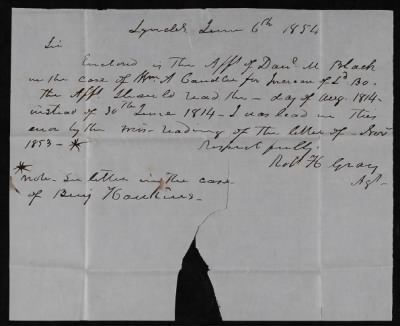 Lynchb. June 6th 1854
Sir
Enclosed is the Afft of Danl M Black
in the case of Wm A Candler for Increase of Ld Bo.
the Afft Should read the — day of Aug. 1814.
instead of 30th June 1814 — I was lead in this
error by the mis-reading of the letter of — Novr
1853 — *
Respectfully
Rob H Gray
Agt —
*note. See letter in the case
of Benj Hawkins —